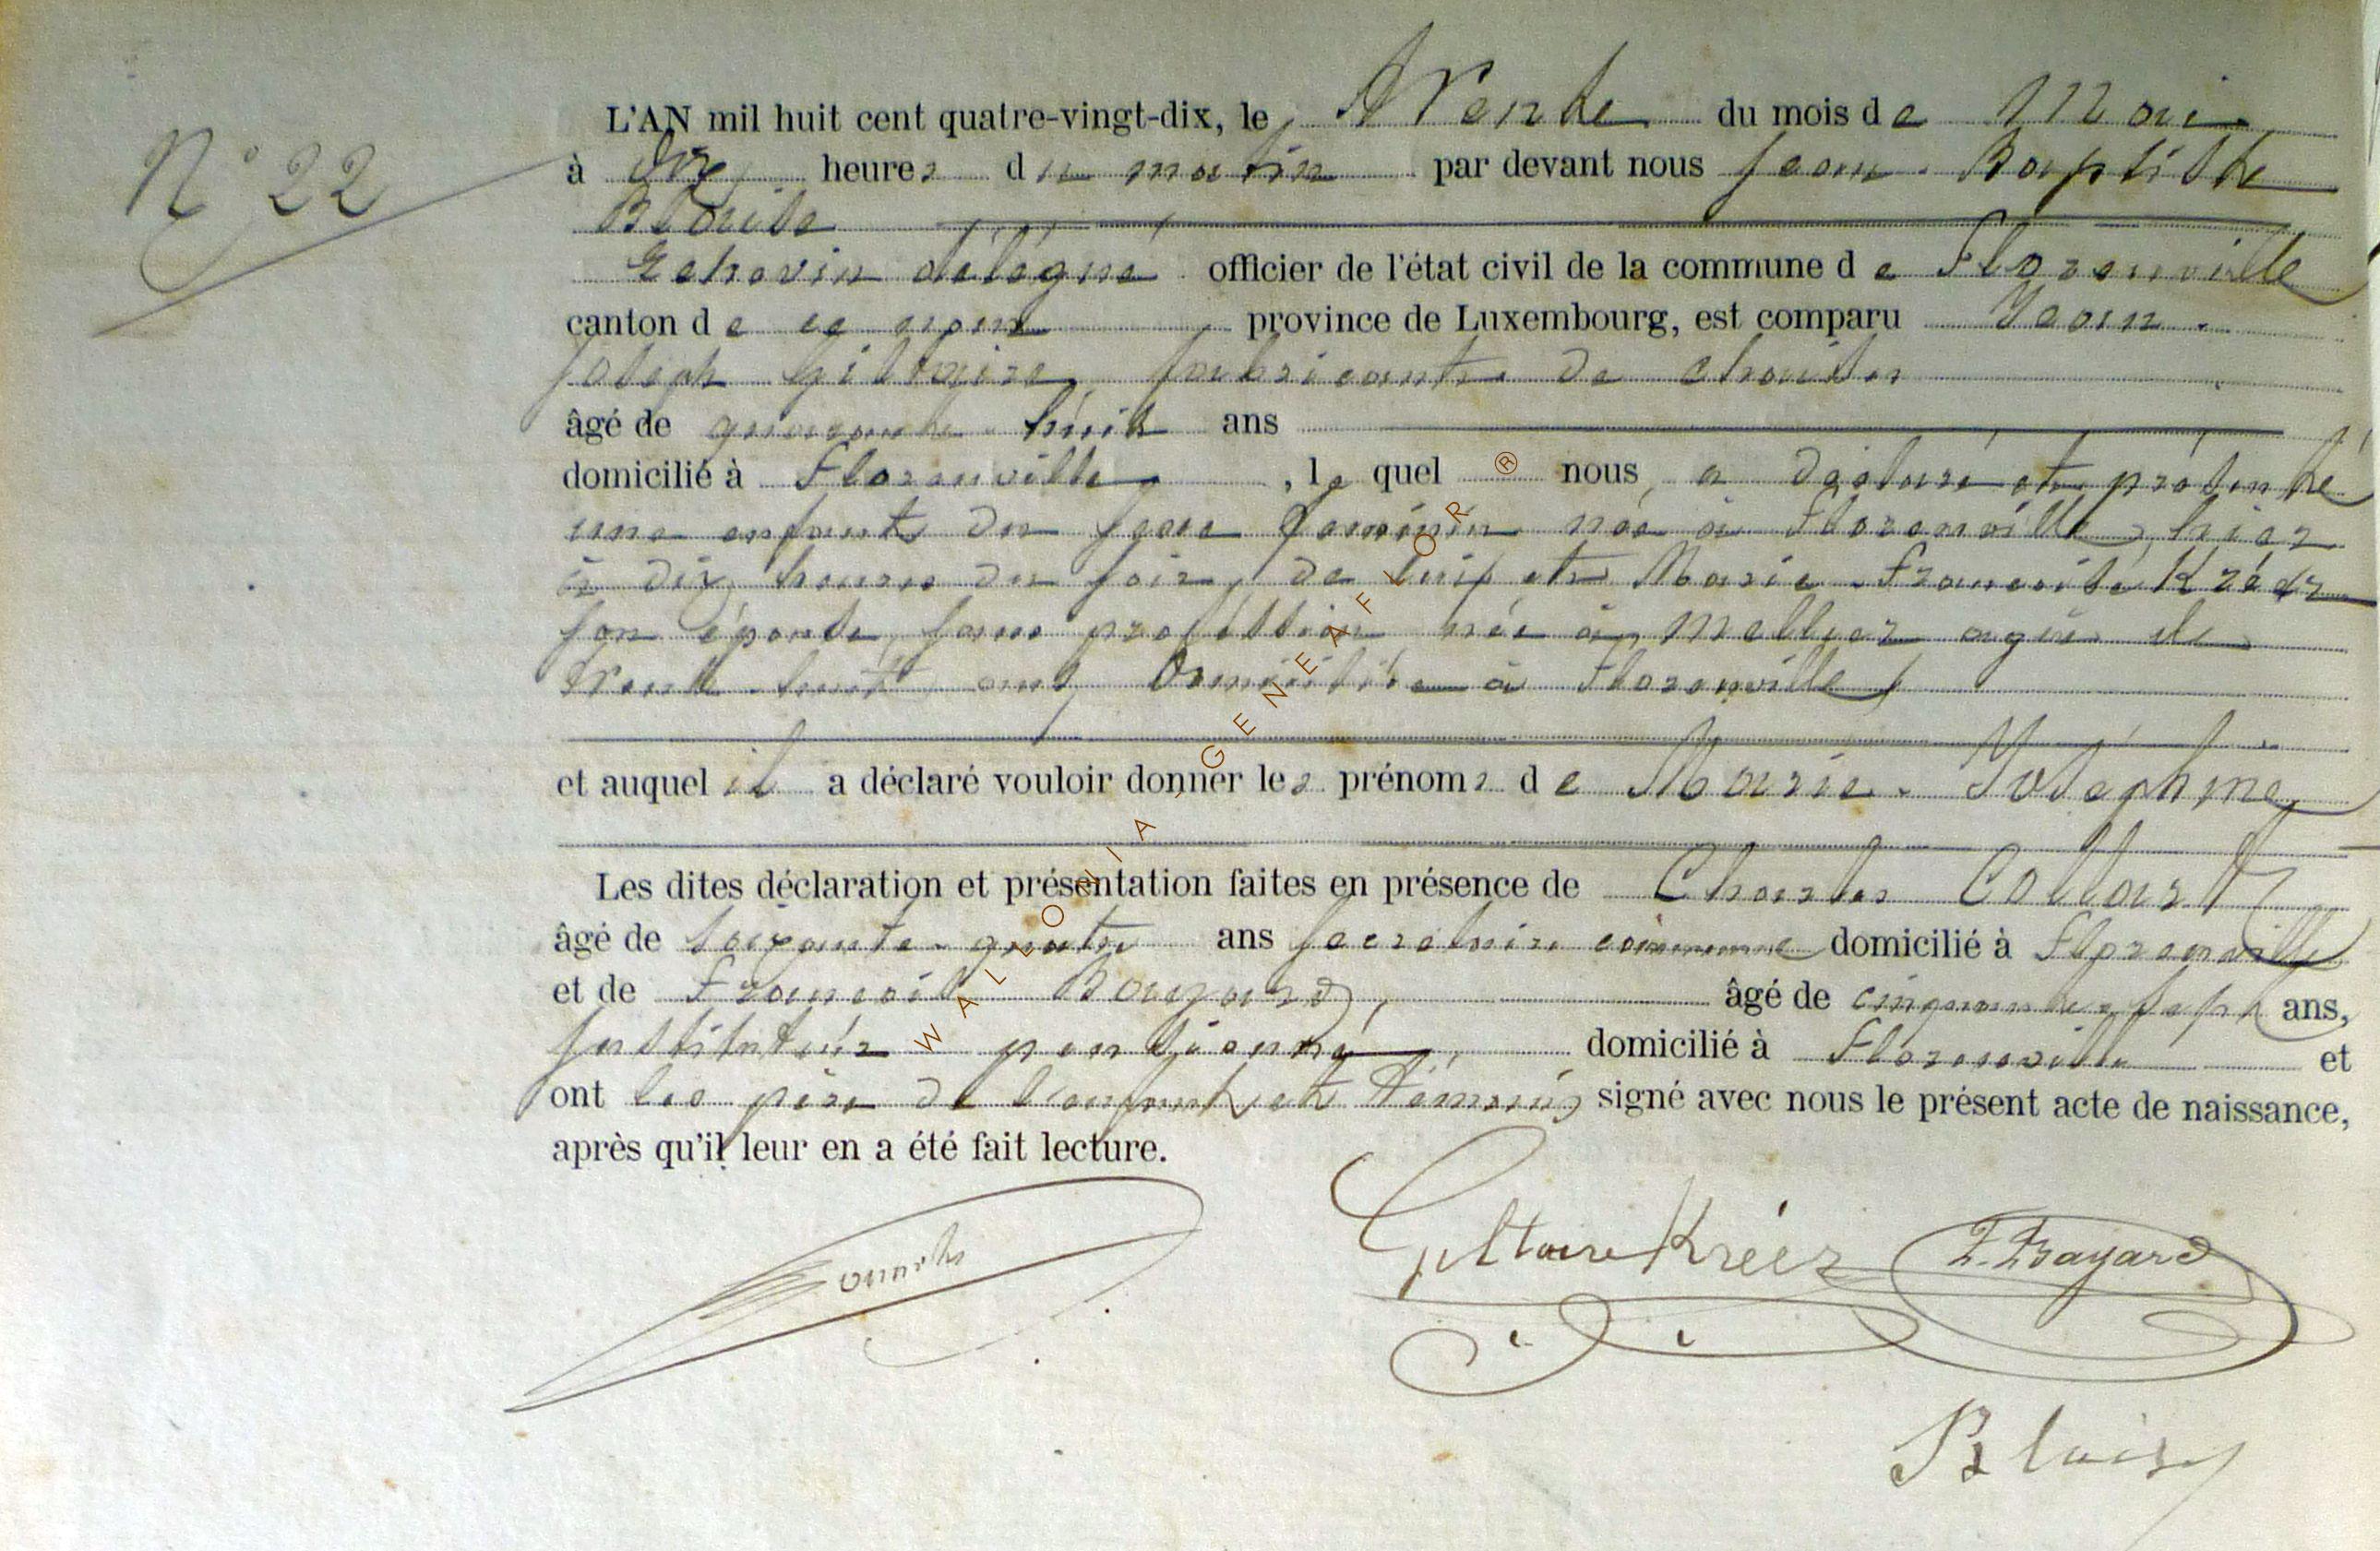 N° 22
L'AN mil huit cent quatre-vingt-dix, le Trente du mois de Mai
à dix heures du matin par devant nous Jean-Baptiste
Blaise
Echevin délégué officier de l'état civil de la commune de Florenville
canton de ce nom province de Luxembourg, est comparu Jean-
Joseph Giltaire, fabricant de chaises
âgé de quarante-huit ans
domicilié à Florenville, lequel nous a déclaré et présenté
une enfant du sexe féminin née à Florenville, hier
à dix heures du soir, de lui et Marie-Françoise Kréer
son épouse, sans profession née à Mellier agée de
trente-huit ans domiciliée à Florenville
et auquel il a déclaré vouloir donner les prénoms de Marie-Joséphine
Les dites déclaration et présentation faites en présence de Charles Collart
âgé de soixante-quatre ans secrétaire communal domicilié à Florenville
et de François Bayard, âgé de cinquante-sept ans,
Instituteur pensionné, domicilié à Florenville et
ont les père de l'enfant et témoins signé avec nous le présent acte de naissance,
après qu'il leur en a été fait lecture.
Giltaire Kréer F. Bayard
Blaise
WALLONIA - GENEAFLOR ®